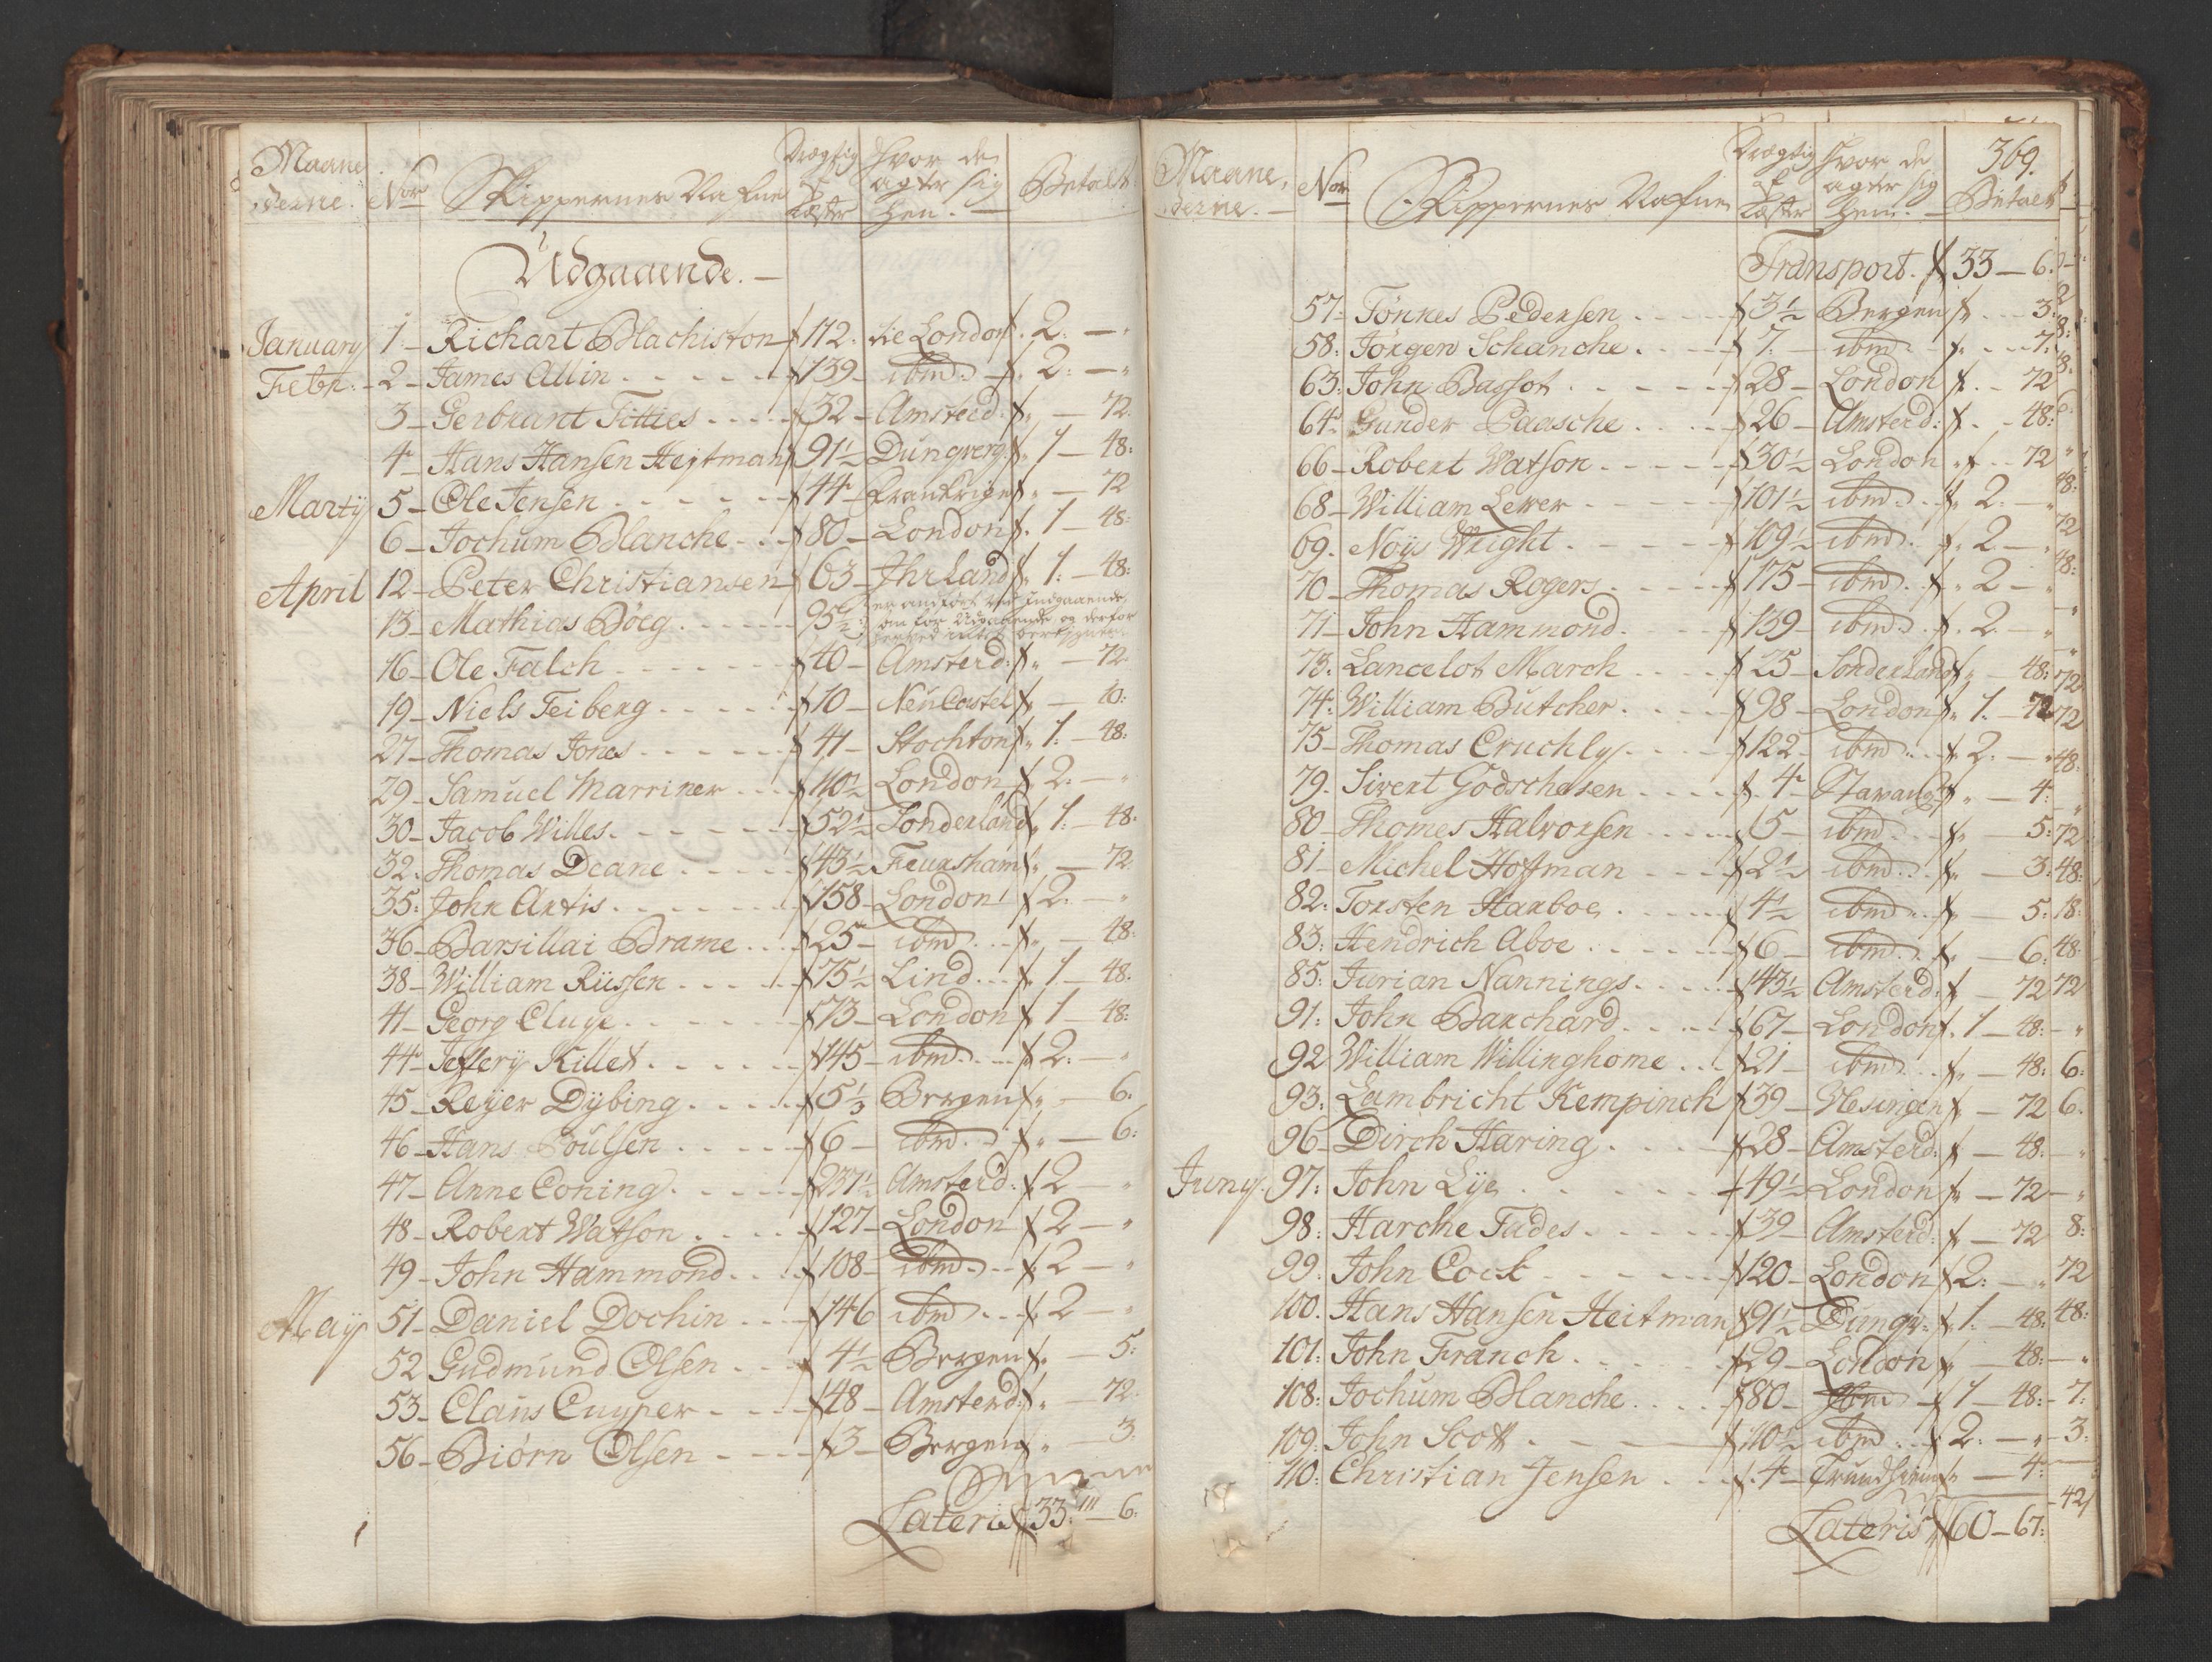 Maane
derne. Nor Skippernes Nafne Drægtig Læster Hvor de agter sig hen. Betalt
Udgaaende.
January 1 Richart Blachiston 112 til London 2
Febr: 2 James Allin 139 ibm 2
3 Gerbrant Titties 32 Amsterd: 72
4 Hans Hansen Hejtman 91½ Dungverg 1 48:
Martij 5 Ole Jensen 44 Frankrige 72
6 Jochum Blanche 80 London 1 48:
April 12 Peter Christiansen 63 Jhrland 1: 48:
13 Mathias Böeg 95½ er anført ved Indgaaende
om for Udgaaende og derfor
16 Ole Falch 40 Amsterd: 72
19 Niels Feiberg 10 NeuCastel 10:
27 Thomas Jones 41 Stochton 1: 48:
29 Samuel Marriner 110½ London 2:
30 Jacob Willes 52½ Sonderland 1: 48:
32 Thomas Deane 43½ Feuersham 72
35: John Artis 158 London 2:
36 Barsillai Brame 25 ibm 48:
38 William Rüssen 75½ Lind 1 48:
41 Georg Cluge 73 London 1 48:
44 Jeffery Killet 145 ibm 2:
45 Reyer Dybing 5½ Bergen 6:
46 Hans Poulsen 6 ibm 6:
47 Anne Coning 237½ Amsterd: 2
48 Robert Watson 127 London 2
49 John Hammond 108 ibm 2
Maij 51 Daniel Dochin 146 ibm 2
52 Gudmund Olsen 4½ Bergen 5:
53 Claus Cuyper 48 Amsterd: 72
56 Biörn Olsen 3 Bergen 3
Lateris 33: 6:
369.
Maane,
derne. Nor Skippernes Nafne Drægtig Læster Hvor de agter sig hen. Betalt
Transport. 33 6:
57: Tönnes Pedersen 3½ Bergen 3:
58: Jörgen Schanche 7: ibm 7:
63: John Bassot 28 London 72
64 Gunder Paasche 26 Amsterd: 48:
66 Robert Watson 30½ London 72
68 William Lewer 101½ ibm 2:
69. Noys Wright 109½ ibm 2
70 Thomas Rogers 175 ibm 2
71 John Hammond 139 ibm 2
73: Lancelot March 25 Sonderland 48:
74: William Butcher 98 London 1. 72
75 Thomas Cruchly 122 ibm 2:
79. Sivert Godschalsen 4 Stavang 4:
80 Thomes Halvorsen 5 ibm 5:
81 Michel Hoffman 2½ ibm 3:
82: Torsten Harboe 4½ ibm 5:
83: Hendrich Aboe 6 ibm 6:
85: Jurian Nannings 43½ Amsterd: 72
91: John Barchard 67 London 1 48:
92 William Willinghome 21 ibm 48:
93: Lambricht Kempinck 39 Vlesingen 72
96 Dirch Haring 28 Amsterd: 48:
Juny 97: John Lye 49½ London 72
98: Harche Tades 39 Amsterd: 72
99: John Cock 120 London 2:
100. Hans Hansen Heitman 91½ Dungv: 1: 48:
101: John Franch 29 London 48:
108: Jochum Blanche 80 ibm 1 48:
109: John Scott 110½ ibm 2:
110: Christian Jensen 4 Trundhiem 4:
Lateris 60 67: